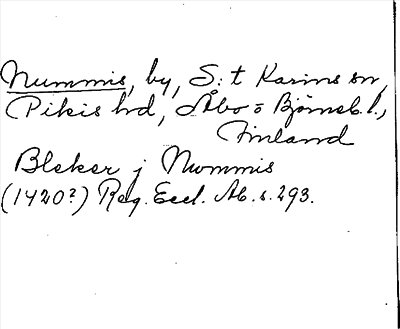 Nummis, by, S:t Karins sn,
Pikis hd, Åbo o Björneb. l.,
Finland
Bleker j Nummis
(1420?) Reg. Eccl. Ab. s. 293.